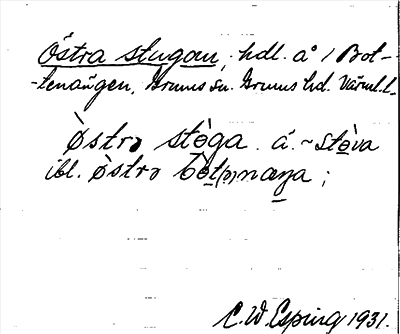 Östra stugan, hdl. å 1 Bot-
-tenängen, Grums sn. Grums hd. Värml. l.
òstrə stò̱ga. á. ~ stò̱va
ibl. òstrə bò̱t(ə)næŋa ;
C. W. Esping 1931.